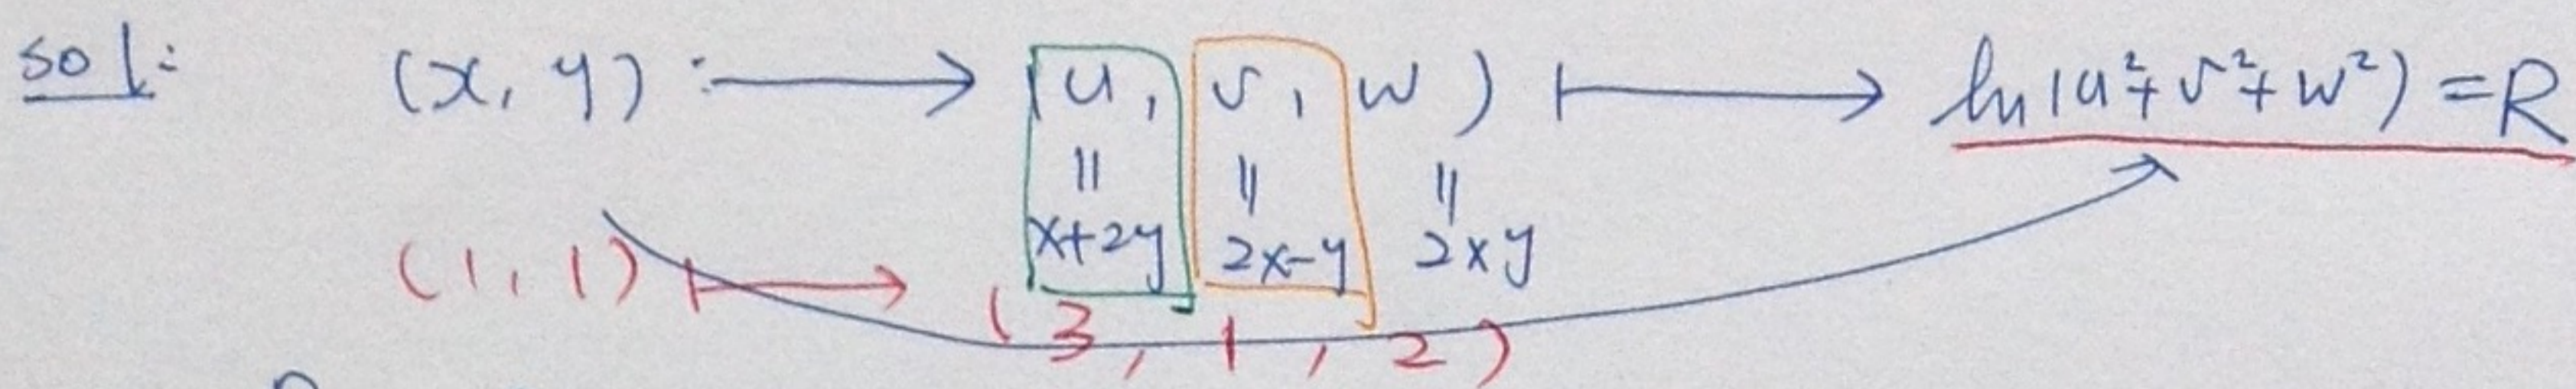 sol: (x, y) ⟼ (u, v, w) ⟼ ln(u²+v²+w²) = R
|| || ||
x+2y 2x-y 2xy
(1, 1) ⟼ (3, 1, 2)